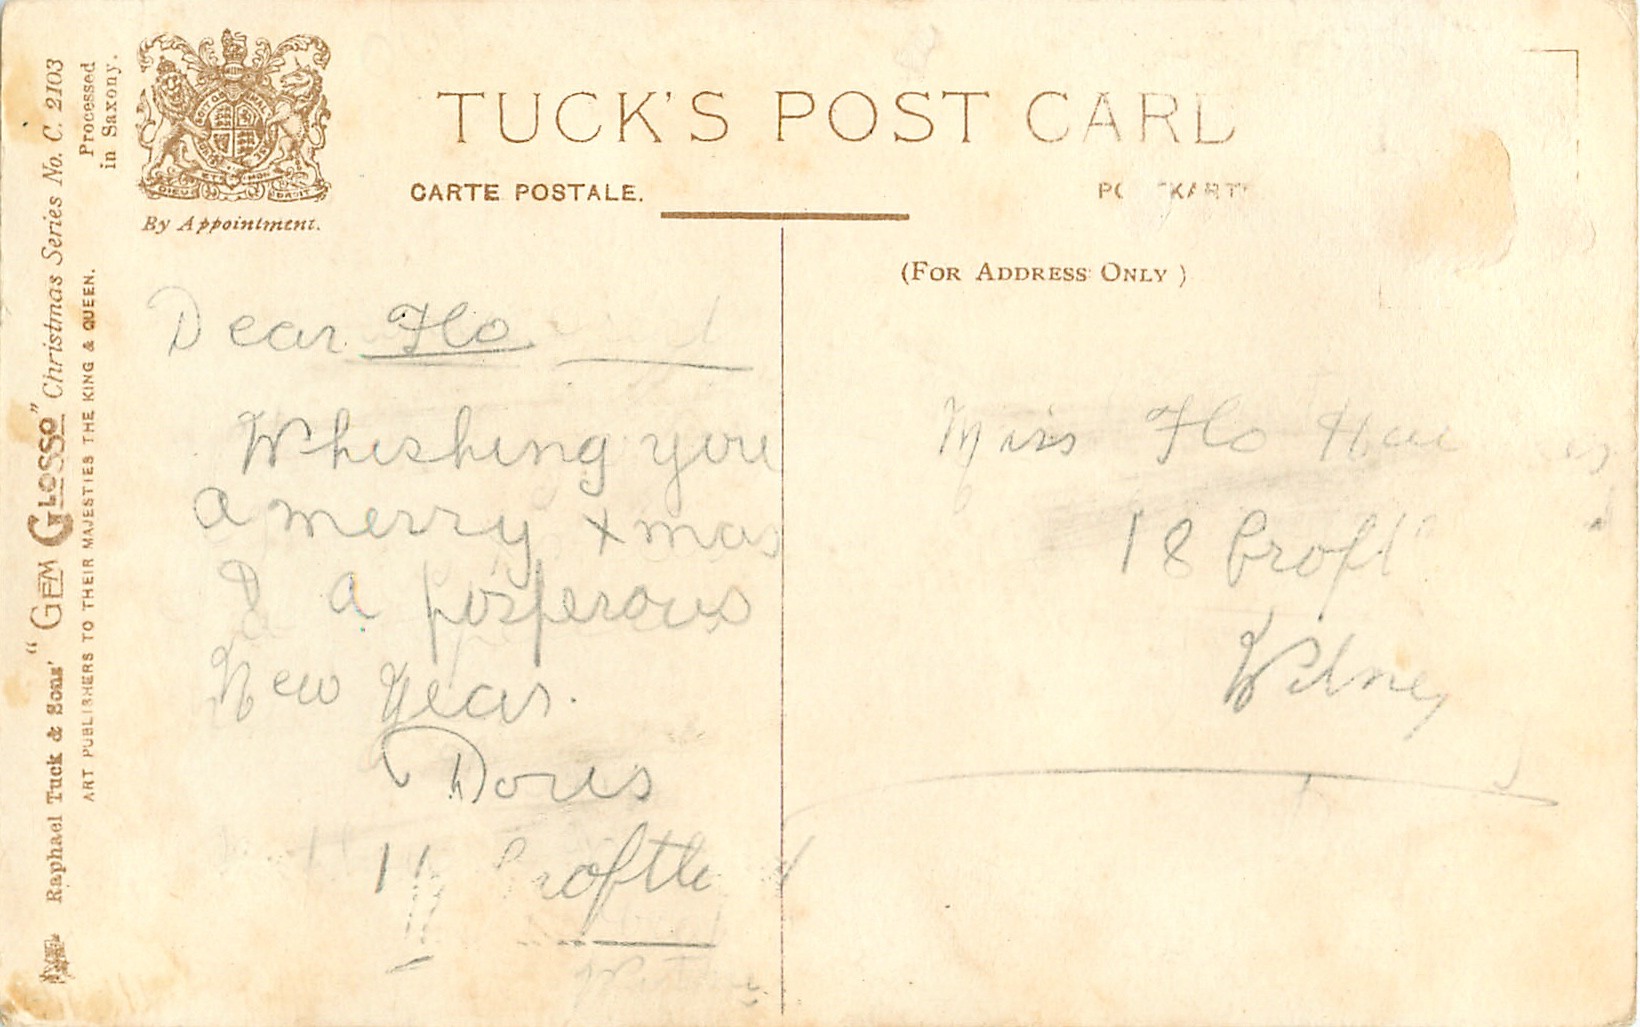 Raphael Tuck & Sons' "GEM GLOSSO" Christmas Series No. C. 2103
ART PUBLISHERS TO THEIR MAJESTIES THE KING & QUEEN.
Processed
in Saxony.
By Appointment.
TUCK'S POST CAR
CARTE POSTALE.
(FOR ADDRESS ONLY)
Dear Flo
Whishing you
a merry xmas
& a posperous
New Year.
Doris
Miss Flo
18 Croft
Witney